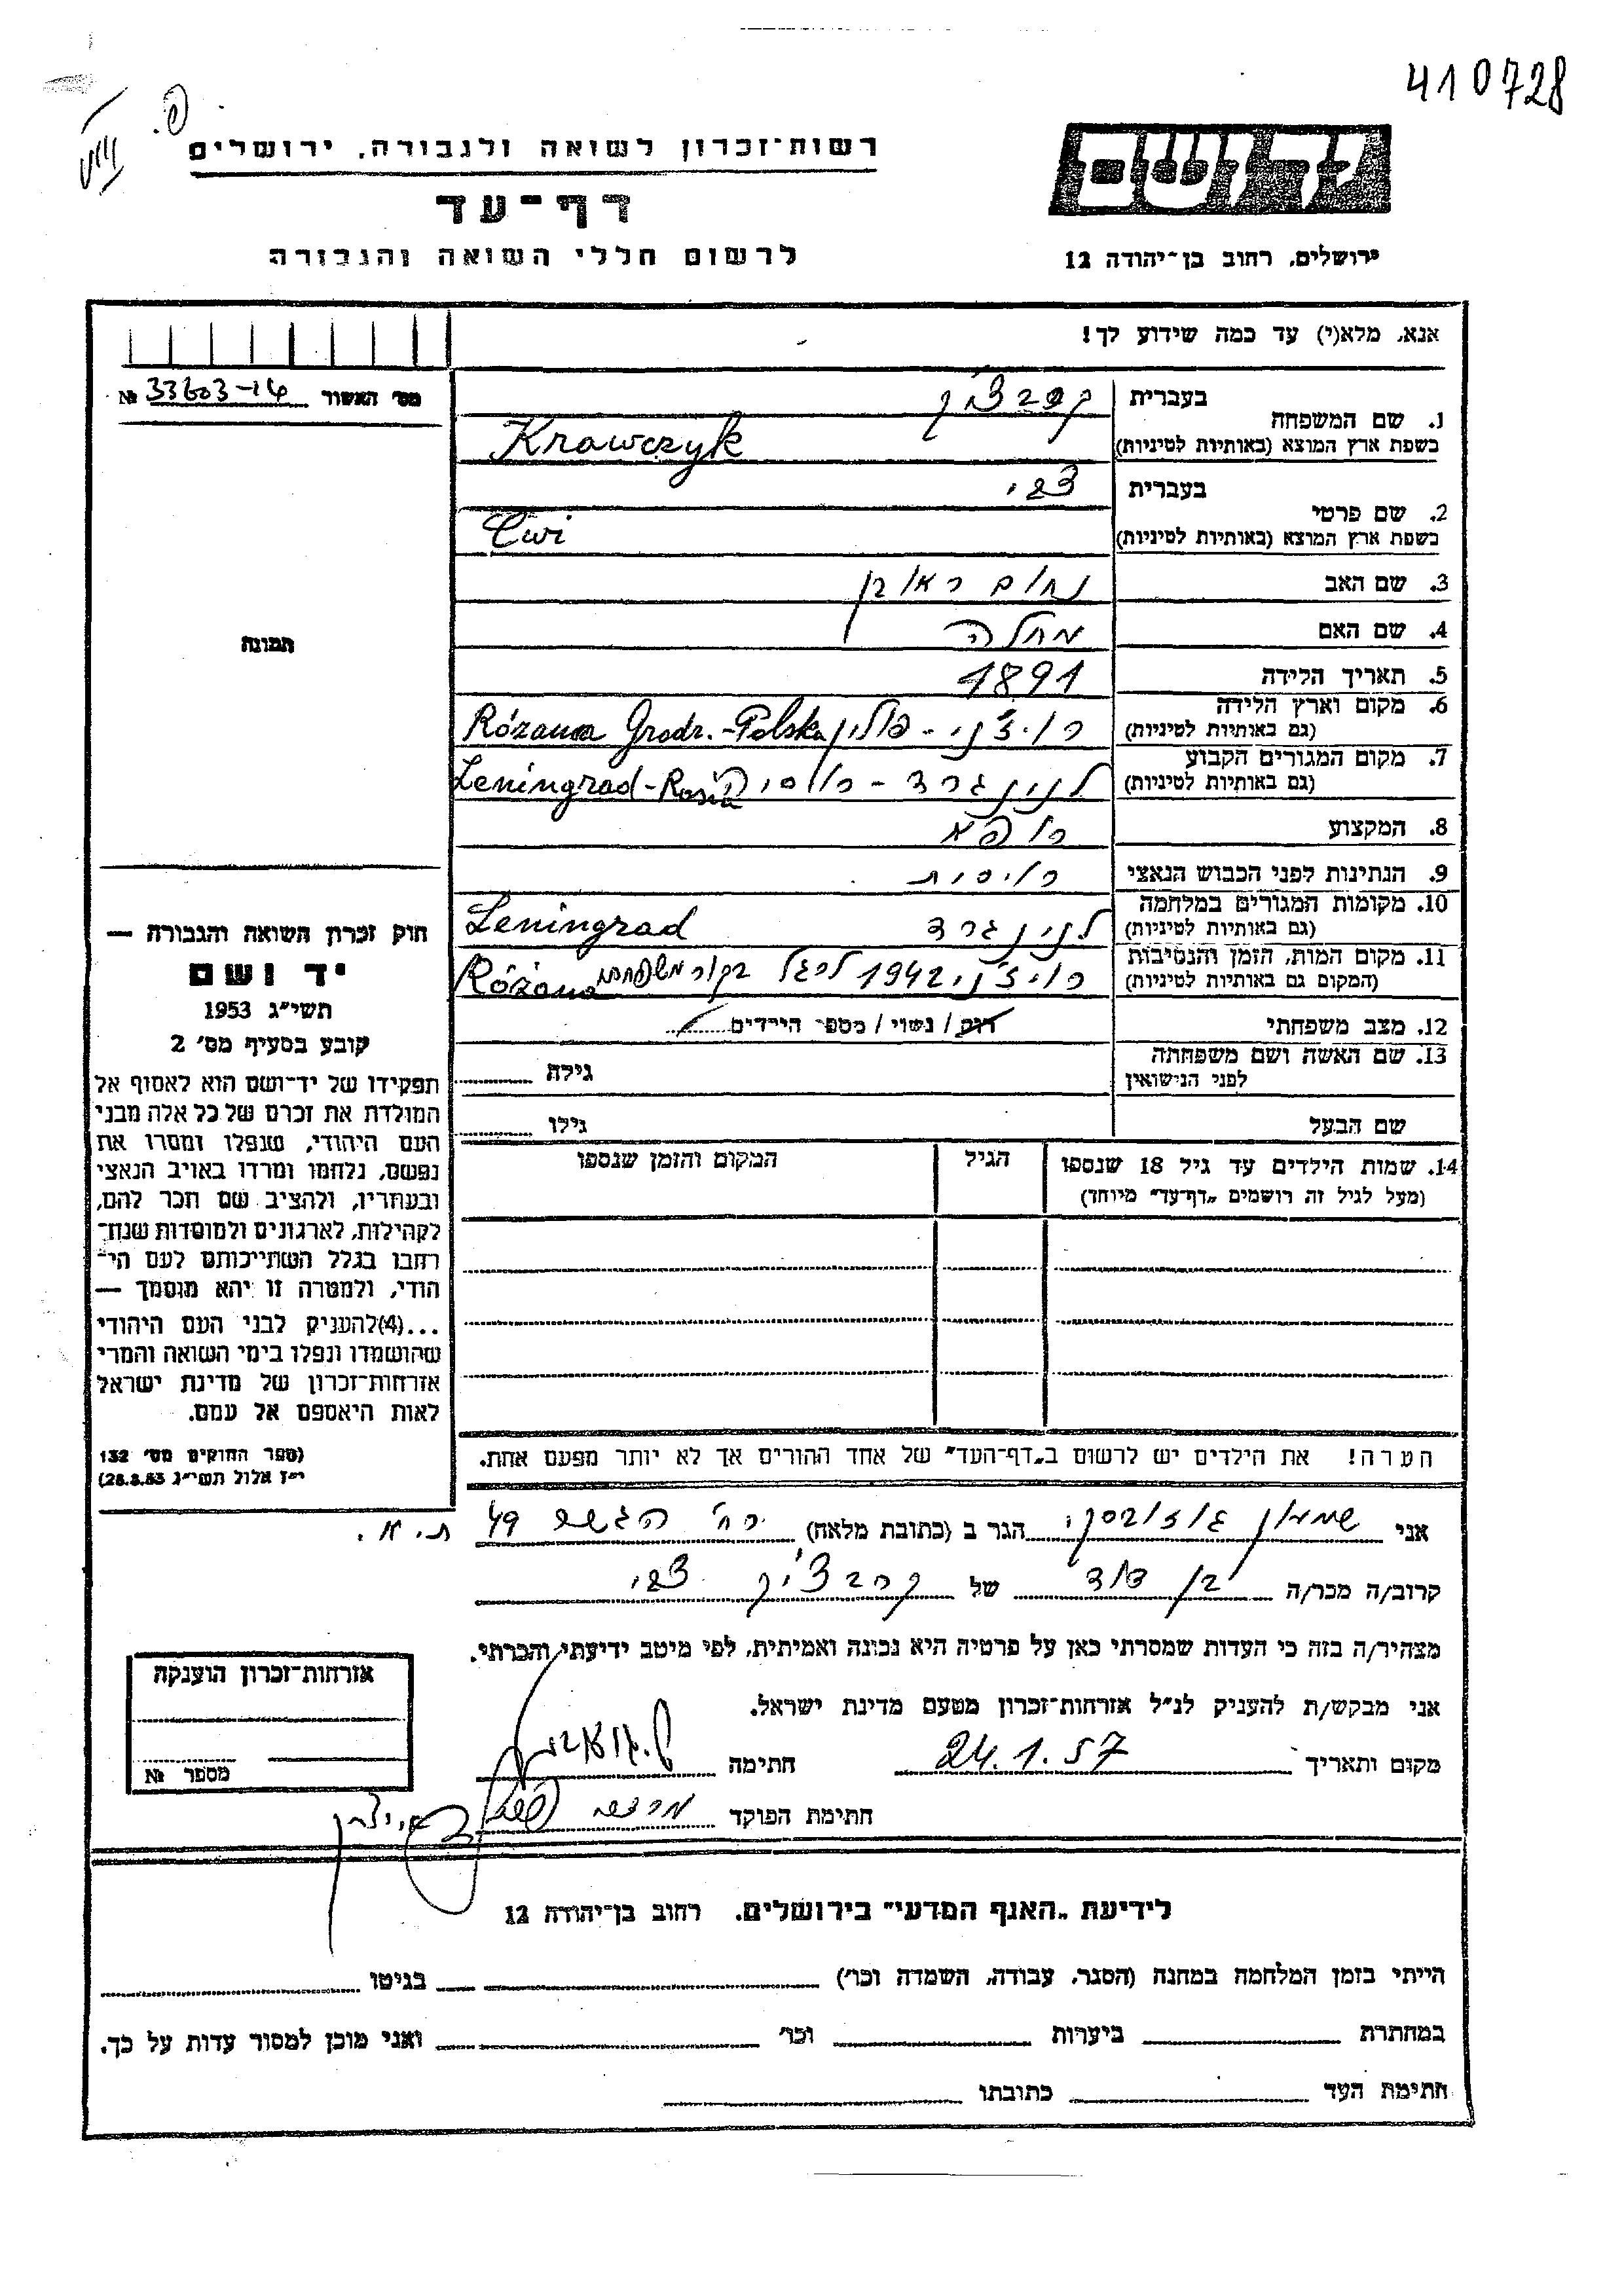 410728
פ.
רשות־זכרון לשואה ולגבורה, ירושלים
דף־עד
לרשום חללי השואה והגבורה
יד ושם
ירושלים, רחוב בן־יהודה 12
אנא, מלא(י) עד כמה שידוע לך!
מס' האשור № 33603-14
תמונה
1. שם המשפחה בעברית קרבצ'יק
בשפת ארץ המוצא (באותיות לטיניות) Krawczyk
2. שם פרטי בעברית צבי
בשפת ארץ המוצא (באותיות לטיניות) Cwi
3. שם האב נחום ראובן
4. שם האם מחלה
5. תאריך הלידה 1891
6. מקום וארץ הלידה (גם באותיות לטיניות) רוז'ני - פולין Rózana Grodz.-Polska
7. מקום המגורים הקבוע (גם באותיות לטיניות) לנינגרד - רוסיה Leningrad-Rosia
8. המקצוע רופא
9. הנתינות לפני הכבוש הנאצי רוסית
10. מקומות המגורים במלחמה (גם באותיות לטיניות) לנינגרד Leningrad
11. מקום המות, הזמן והנסיבות (המקום גם באותיות לטיניות) רוז'ני 1942 לרגל בקור משפחתו Rózana
12. מצב משפחתי רווק / נשוי / מספר הילדים
13. שם האשה ושם משפחתה לפני הנישואין גילה
שם הבעל גילו
14. שמות הילדים עד גיל 18 שנספו הגיל המקום והזמן שנספו
(מעל לגיל זה רושמים „דף־עד" מיוחד)
חוק זכרון השואה והגבורה —
יד ושם
תשי"ג 1953
קובע בסעיף מס' 2
תפקידו של יד־ושם הוא לאסוף אל
המולדת את זכרם של כל אלה מבני
העם היהודי, שנפלו ומסרו את
נפשם, נלחמו ומרדו באויב הנאצי
ובעוזריו, ולהציב שם וזכר להם,
לקהילות, לארגונים ולמוסדות שנח־
רחבו בגלל השתייכותם לעם הי־
הודי, ולמטרה זו יהא מוסמך —
...(4)להעניק לבני העם היהודי
שהושמדו ונפלו בימי השואה והמרי
אזרחות־זכרון של מדינת ישראל
לאות היאספם אל עמם.
(ספר החוקים מס' 132
י"ז אלול תשי"ג 28.8.53)
הערה! את הילדים יש לרשום ב„דף־העד" של אחד ההורים אך לא יותר מפעם אחת.
אני שמעון גוזובסקי הגר ב (כתובת מלאה) רח' 49 ת.א.
קרוב/ה מכר/ה בן דוד של קרבצ'יק צבי
מצהיר/ה בזה כי העדות שמסרתי כאן על פרטיה היא נכונה ואמיתית, לפי מיטב ידיעתי והכרתי.
אני מבקש/ת להעניק לנ"ל אזרחות־זכרון מטעם מדינת ישראל.
מקום ותאריך 24.1.57 חתימה
חתימת הפוקד
אזרחות־זכרון הוענקה
מספר №
לידיעת „האגף המדעי" בירושלים. רחוב בן־יהודה 12
הייתי בזמן המלחמה במחנה (הסגר, עבודה, השמדה וכו') בגיטו
במחתרת ביערות וכו' ואני מוכן למסור עדות על כך.
חתימת העד כתובתו